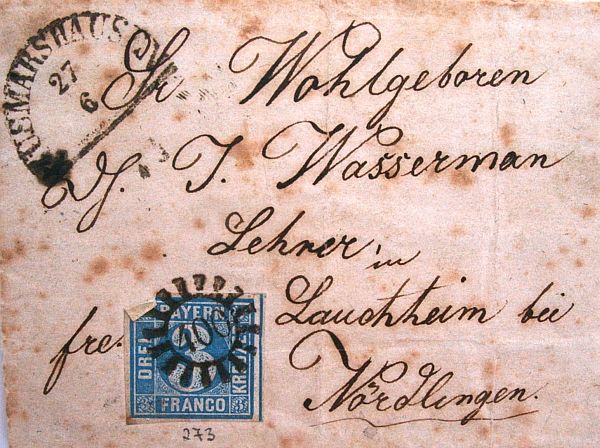 ZUSMARSHAUSEN
27
6
Sr Wohlgeboren
H. J. Wasserman
Lehrer in
Lauchheim bei
fre. Nördlingen.
BAYERN
DREI
KREUZER
FRANCO
273